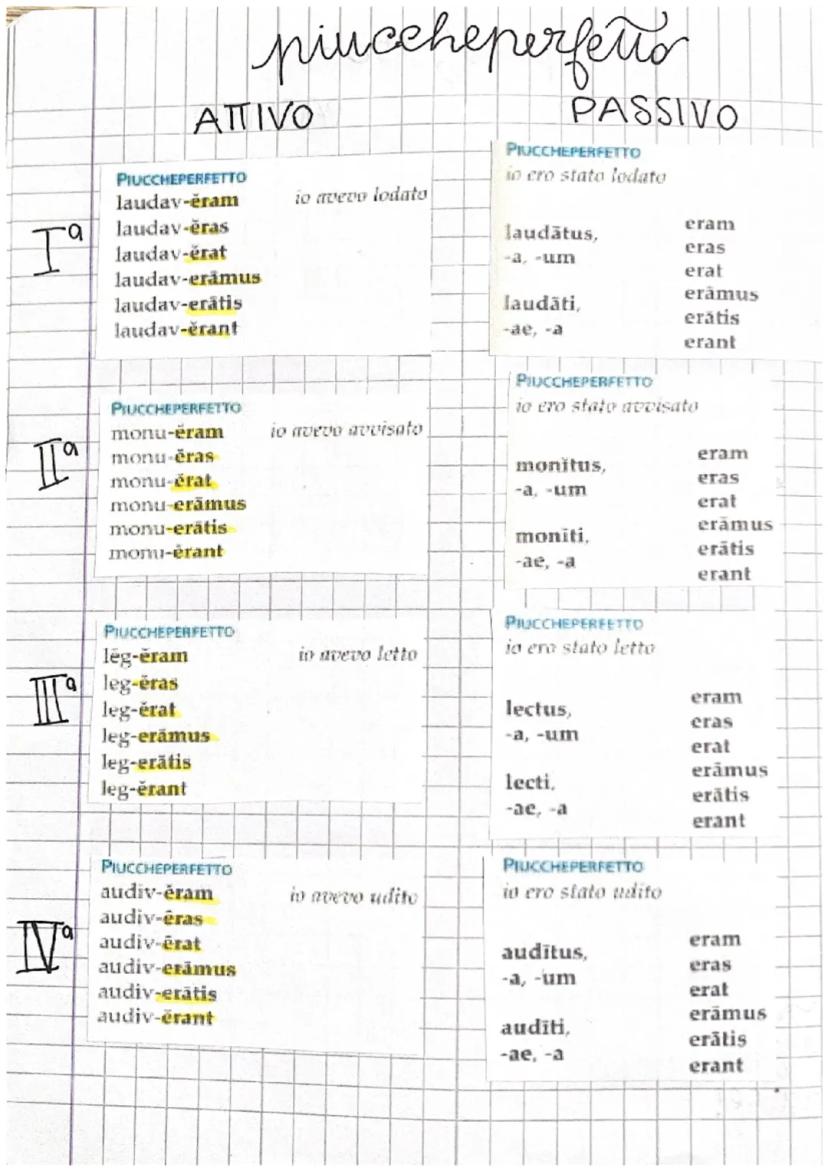 piuccheperfetto
ATTIVO
PASSIVO
Iª
PIUCCHEPERFETTO
laudav-ĕram io avevo lodato
laudav-ĕras
laudav-ĕrat
laudav-erāmus
laudav-erātis
laudav-ĕrant
PIUCCHEPERFETTO
io ero stato lodato
laudātus,
-a, -um
laudāti,
-ae, -a
eram
eras
erat
erāmus
erātis
erant
IIª
PIUCCHEPERFETTO
monu-ĕram io avevo avvisato
monu-ĕras
monu-ĕrat
monu-erāmus
monu-erātis
monu-ĕrant
PIUCCHEPERFETTO
io ero stato avvisato
monĭtus,
-a, -um
monĭti,
-ae, -a
eram
eras
erat
erāmus
erātis
erant
IIIª
PIUCCHEPERFETTO
lēg-ĕram io avevo letto
leg-ĕras
leg-ĕrat
leg-erāmus
leg-erātis
leg-ĕrant
PIUCCHEPERFETTO
io ero stato letto
lectus,
-a, -um
lecti,
-ae, -a
eram
eras
erat
erāmus
erātis
erant
IVª
PIUCCHEPERFETTO
audiv-ĕram io avevo udito
audiv-ĕras
audiv-ĕrat
audiv-erāmus
audiv-erātis
audiv-ĕrant
PIUCCHEPERFETTO
io ero stato udito
audītus,
-a, -um
audīti,
-ae, -a
eram
eras
erat
erāmus
erātis
erant